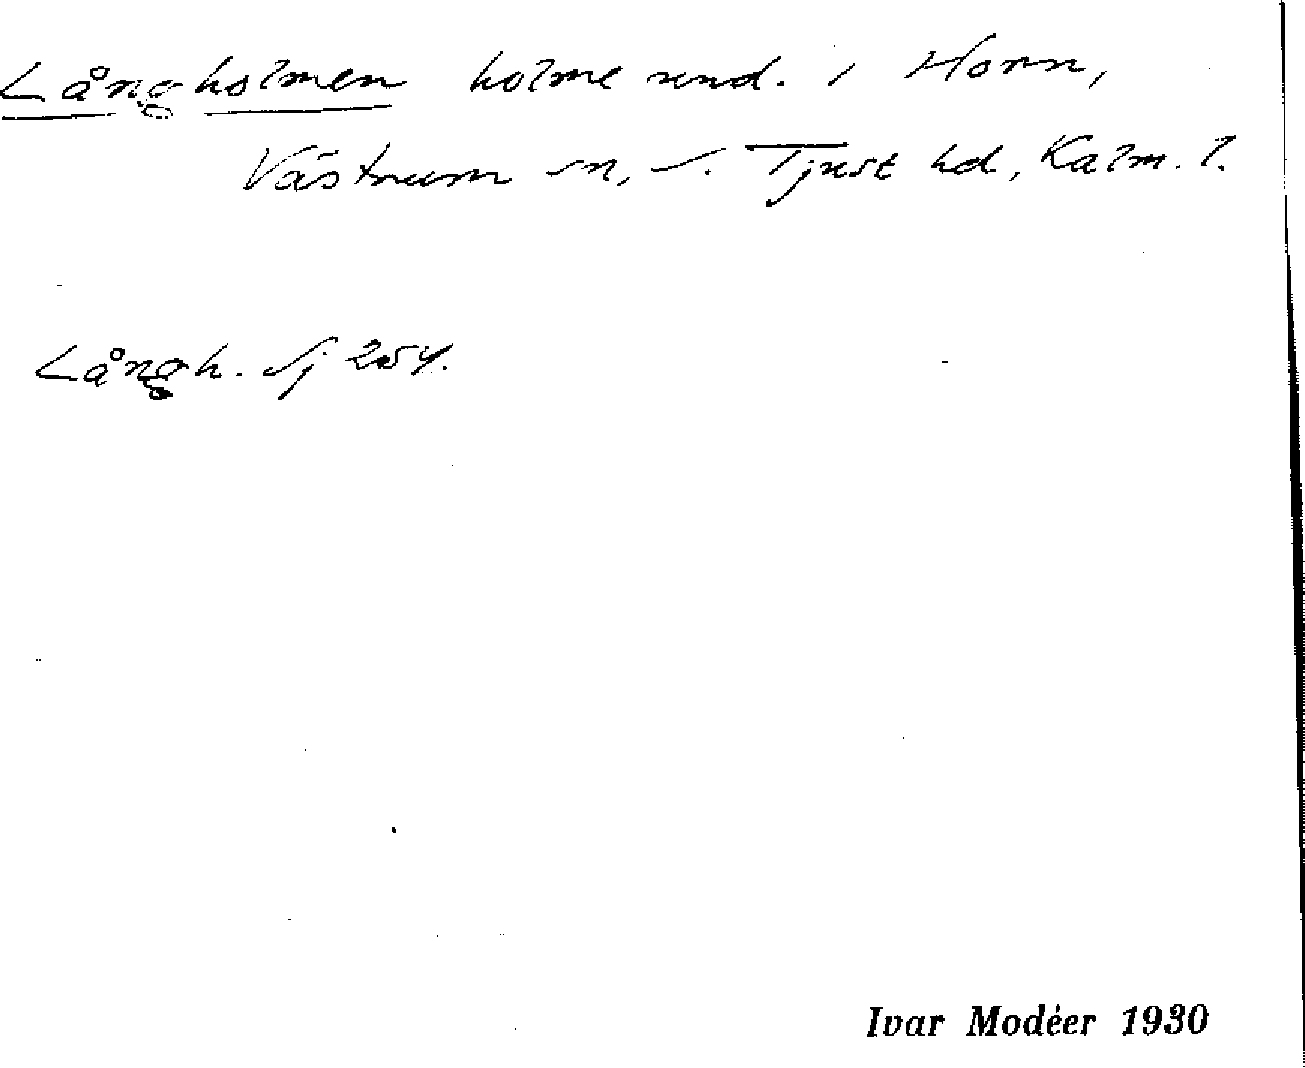 Långholmen holme und. i Horn,
Västrum sn, S. Tjust hd, Kalm. l.
Långh. Sj 254.
Ivar Modéer 1930